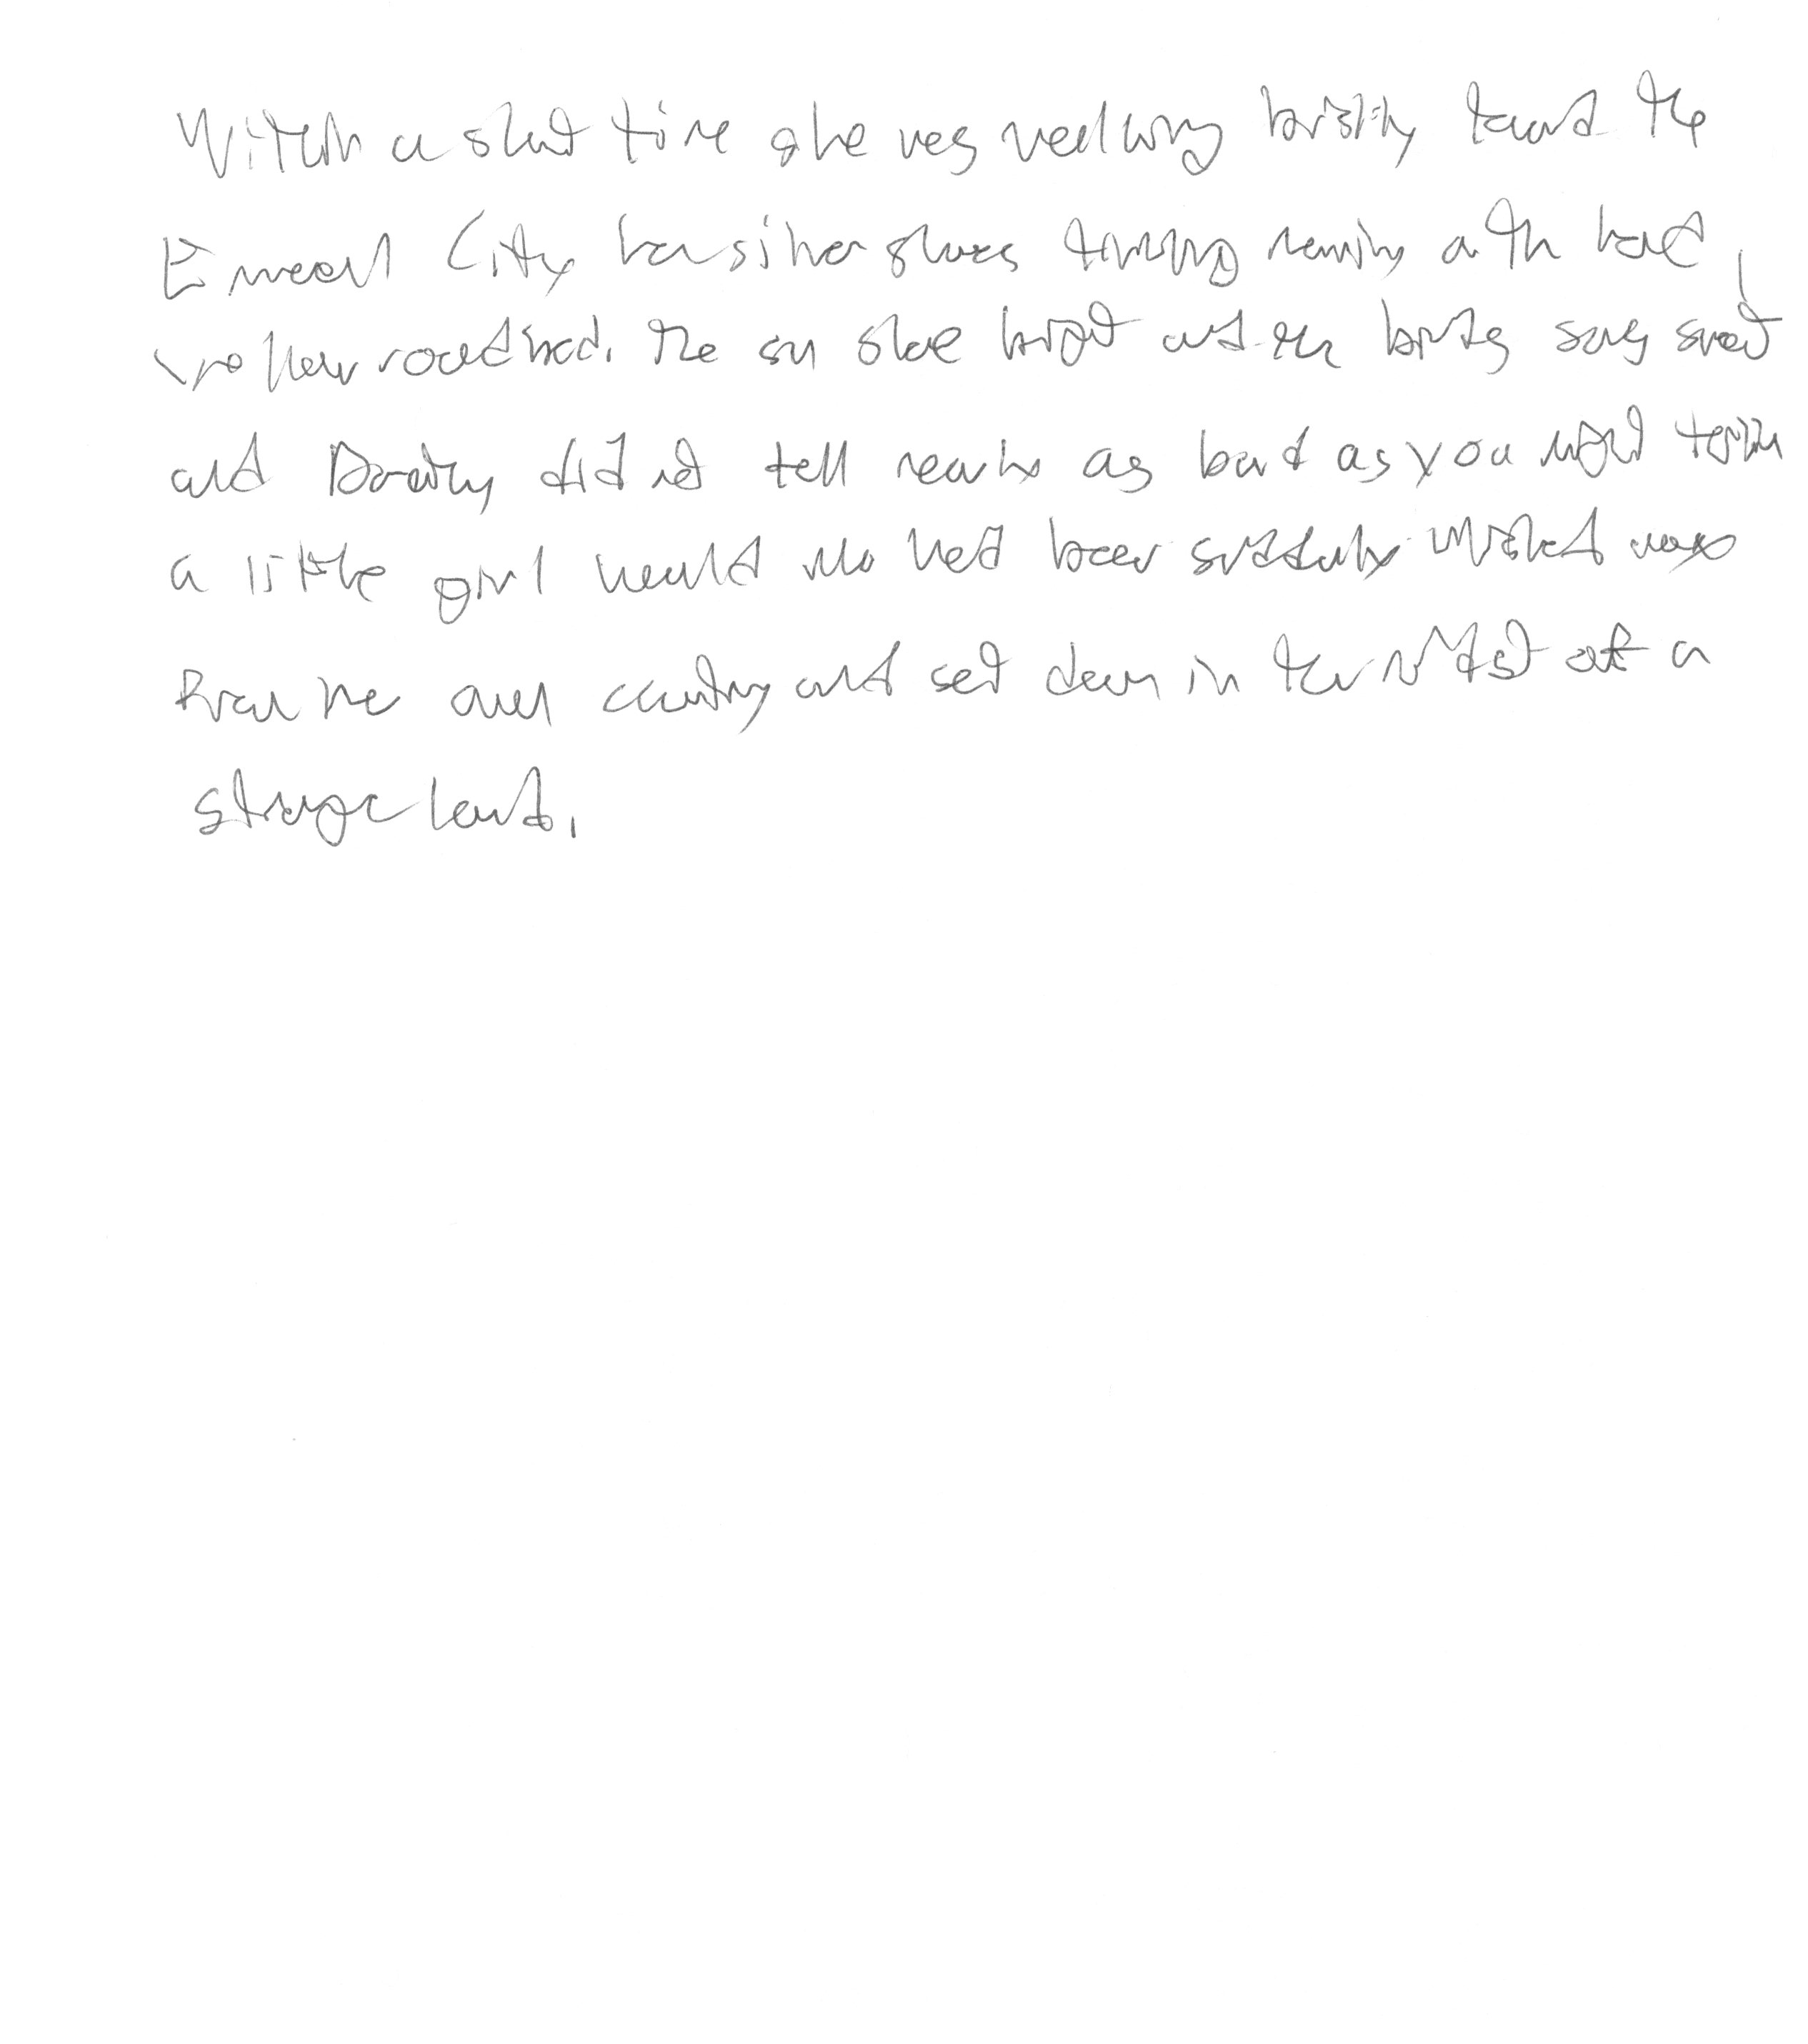 Within a short time she was walking briskly toward the
Emerald City her silver shoes tinkling merrily on the hard,
yellow road bed. The sun shone bright and the birds sang sweet
and Dorothy did not feel nearly as bad as you might think
a little girl would who had been suddenly whisked away
from her own country and set down in the midst of a
strange land.